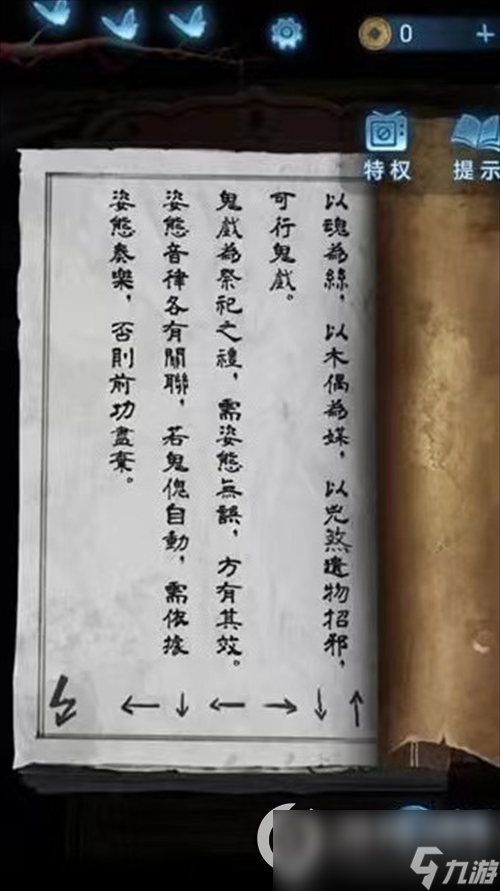 0
特权
提示
以魂為絲，以木偶為媒，以兇煞遺物招邪，
可行鬼戲。
鬼戲為祭祀之禮，需姿態無誤，方有其效。
姿態音律各有關聯，若鬼傀自動，需依據
姿態奏樂，否則前功盡棄。
← ↓ ← → ↓ ↑
九游